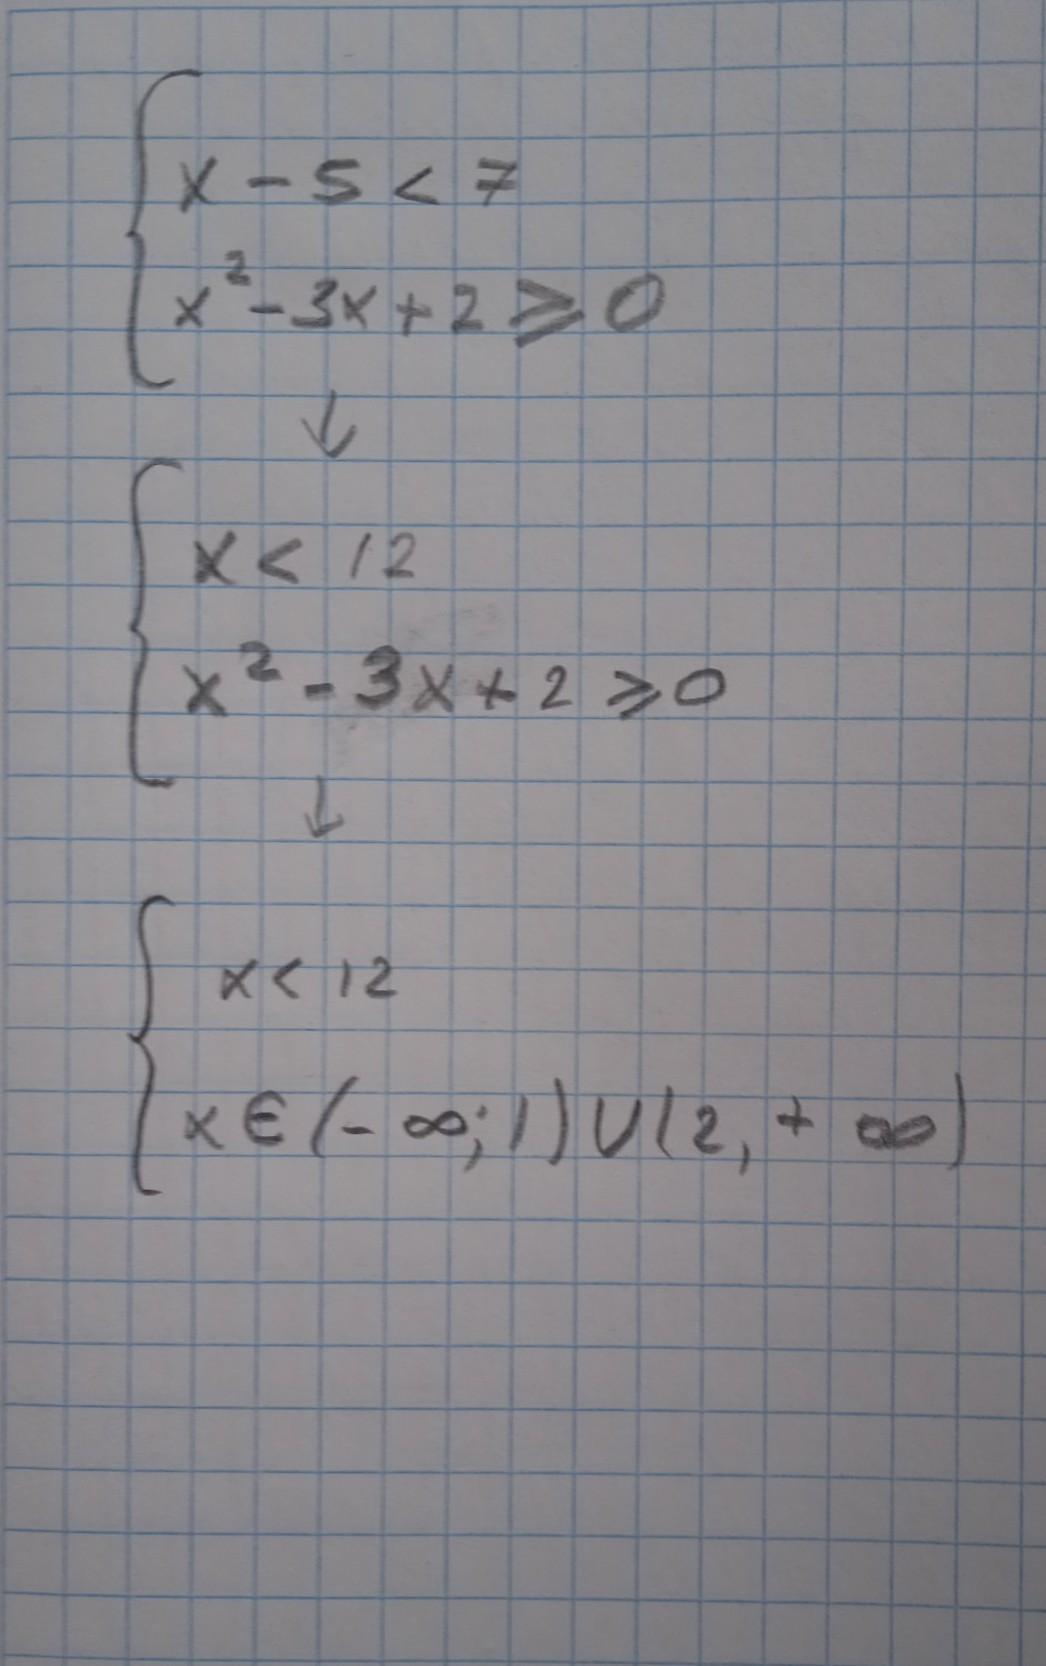 x - 5 < 7
x² - 3x + 2 ⩾ 0
↓
x < 12
x² - 3x + 2 ⩾ 0
↓
x < 12
x ∈ (- ∞; 1) ∪ (2, + ∞)